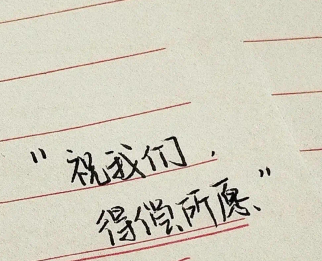 “祝我们，
得偿所愿”